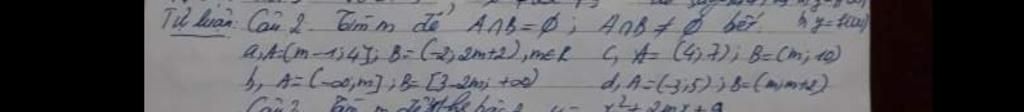 Tự luận: Câu 2. Tìm m để A∩B = Ø ; A∩B ≠ Ø biết
a, A=(m-1;4]; B=(-2;2m+2), m∈R c, A=(4;7); B=(m;10)
b, A=(-∞;m]; B=[3-2m; +∞) d, A=(-3;5); B=(m;m+2)
Câu 3 Tìm m